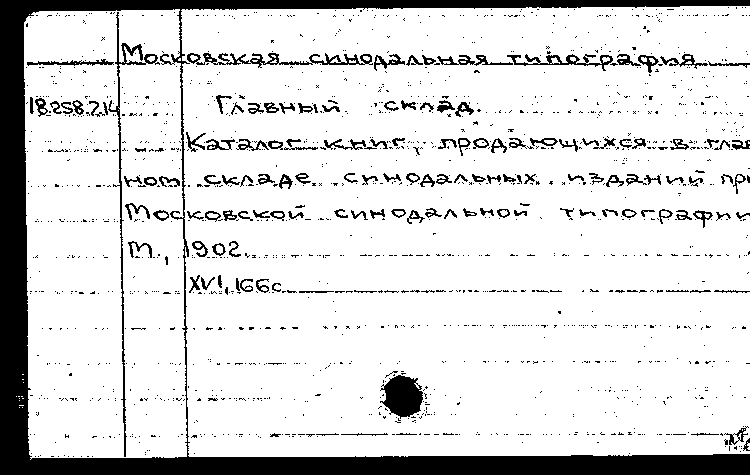 Московская синодальная типография
18.258.214 Главный склад.
Каталог книг, продающихся в глав
ном складе синодальных изданий при
Московской синодальной типографии
М., 1902.
XVI, 166с